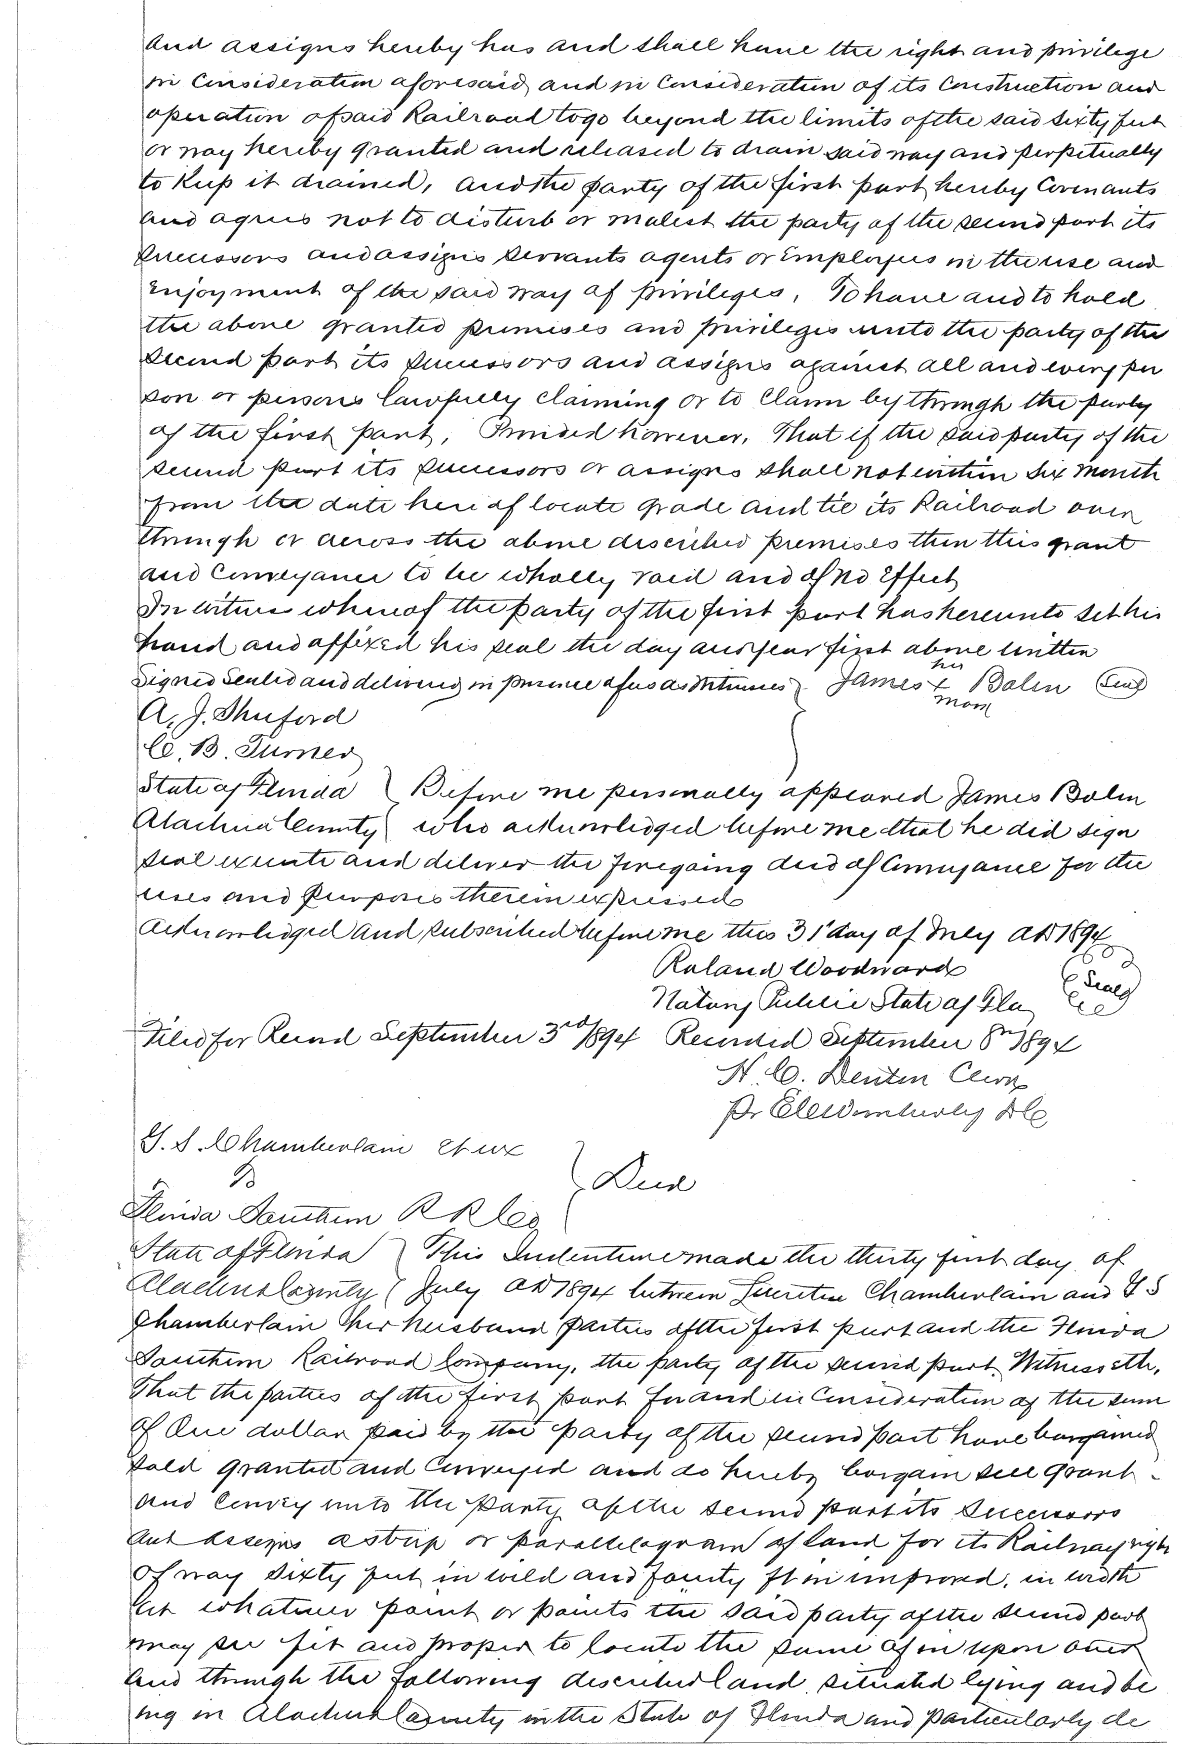 and assigns hereby has and shall have the right and privilege
in Consideration aforesaid and in Consideration of its Construction and
operation of said Railroad to go beyond the limits of the said sixty feet
or way hereby granted and released to drain said way and perpetually
to Keep it drained, and the party of the first part hereby Covenants
and agrees not to disturb or molest the party of the second part its
successors and assigns servants agents or Employees in the use and
Enjoyment of the said way of privileges, To have and to hold
the above granted premises and privileges unto the party of the
second part its successors and assigns against all and every per
son or persons lawfully claiming or to claim by through the party
of the first part, Provided however, That if the said party of the
second part its successors or assigns shall not within six month
from the date here of locate grade and tie its Railroad over
through or across the above described premises then this grant
and Conveyance to be wholly void and of no Effect
In witness whereof the party of the first part has hereunto set his
hand and affixed his seal the day and year first above written
Signed Sealed and delivered in presence of us as Witnesses } James his x mark Bolen (Seal)
A. J. Shuford
C. B. Turner
State of Florida } Before me personally appeared James Bolen
Alachua County { who acknowledged before me that he did sign
seal execute and deliver the foregoing deed of Conveyance for the
uses and purposes therein expressed
Acknowledged and subscribed before me this 31 day of July AD 1894
Roland Woodward (Seal)
Notary Public State of Fla
Filed for Record September 3rd 1894 Recorded September 8th 1894
H. C. Denton Clerk
Pr E C Wimberly DC
G. S. Chamberlain et ux
To } Deed
Florida Southern R R Co
State of Florida } This Indenture made the thirty first day of
Alachua County { July AD 1894 between Lucretia Chamberlain and G S
Chamberlain her husband parties of the first part and the Florida
Southern Railroad Company, the party of the second part. Witnesseth,
That the parties of the first part for and in Consideration of the sum
of One dollar paid by the party of the second part have bargained
sold granted and Conveyed and do hereby bargain sell grant
and Convey unto the party of the second part its Successors
and assigns a strip or parallelogram of land for its Railway right
of way sixty feet in wild and fourty ft in improved, in width
at whatever point or points the said party of the second part
may see fit and proper to locate the same of in upon over
and through the following described land, situated lying and be
ing in Alachua County in the State of Florida and particularly de